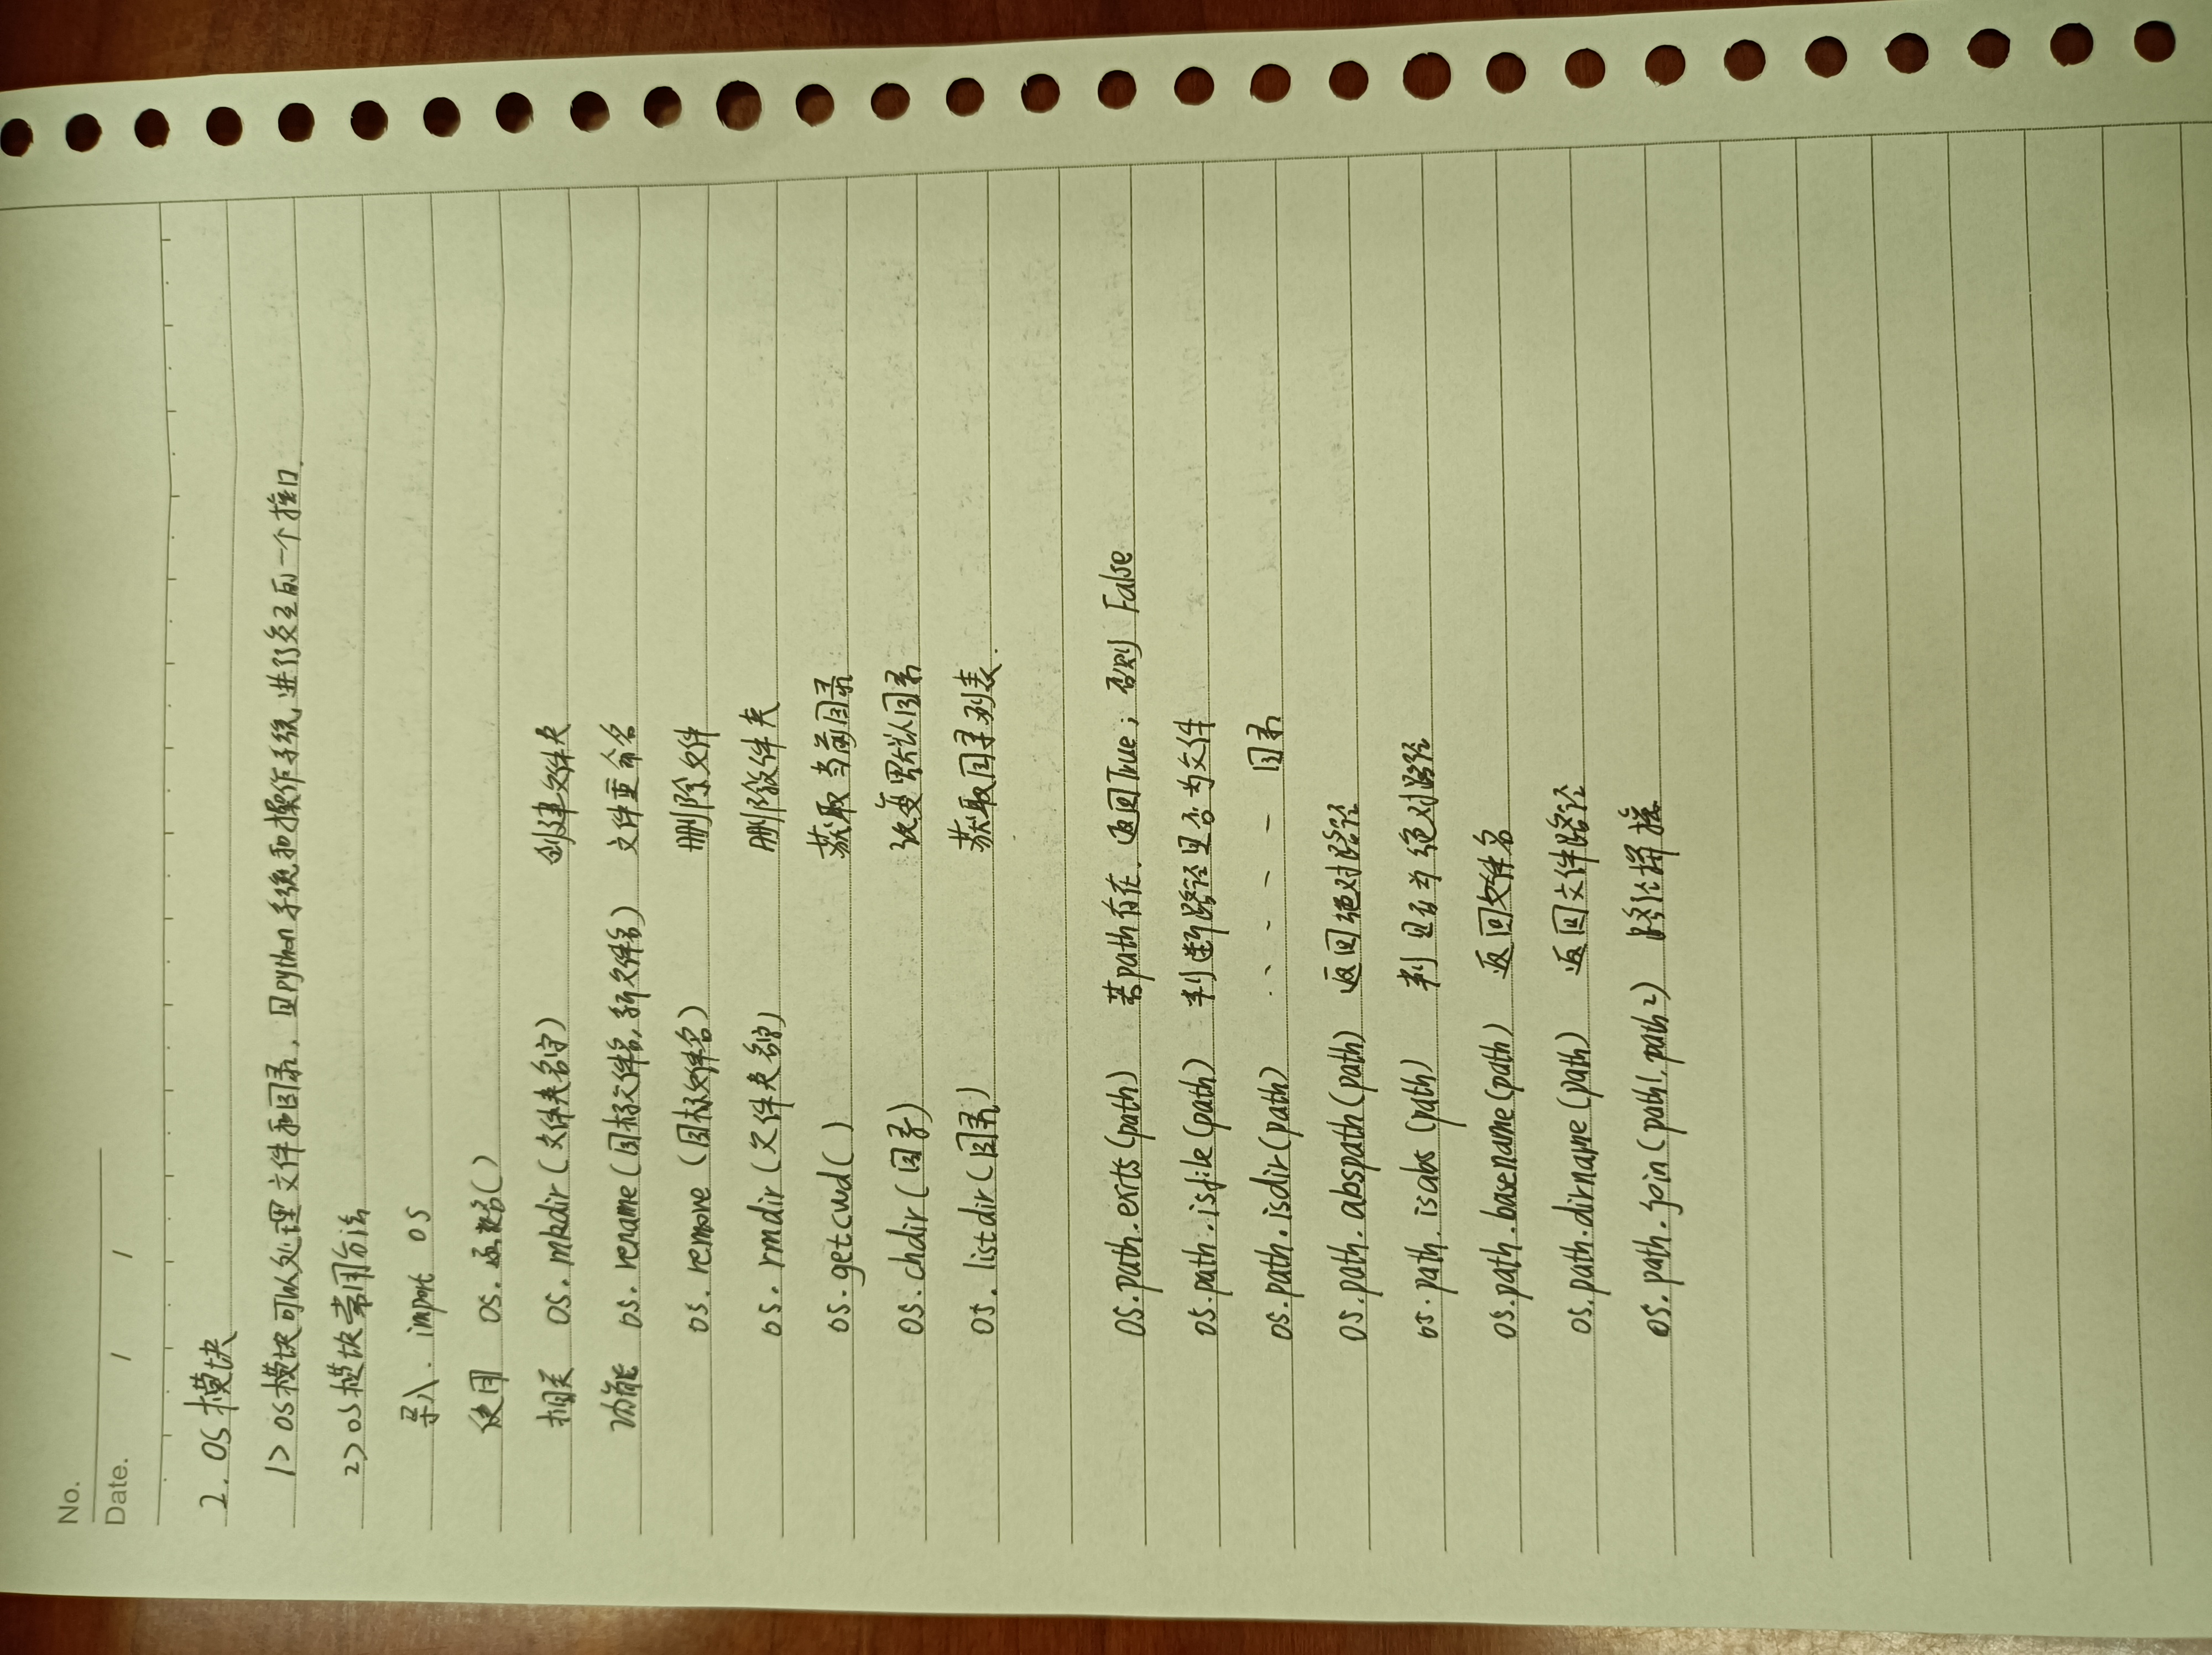 No.
Date. / /
2. OS模块
1> OS模块可以处理文件和目录, 是python系统和操作系统进行交互的一个接口.
2> OS模块常用方法
导入. import os
使用 os.函数名()
相关 os.mkdir(文件夹名字) 创建文件夹
功能 os.rename(目标文件名,新文件名) 文件重命名
os.remove(目标文件名) 删除文件
os.rmdir(文件夹名字) 删除文件夹
os.getcwd() 获取当前目录
os.chdir(目录) 改变默认目录
os.listdir(目录) 获取目录列表.
os.path.exits(path) 若path存在. 返回True; 否则 False
os.path.isfile(path) 判断路径是否为文件
os.path.isdir(path) - - - - - 目录
os.path.abspath(path) 返回绝对路径
os.path.isabs(path) 判是否为绝对路径
os.path.basename(path) 返回文件名
os.path.dirname(path) 返回文件路径
os.path.join(path1,path2) 路径拼接